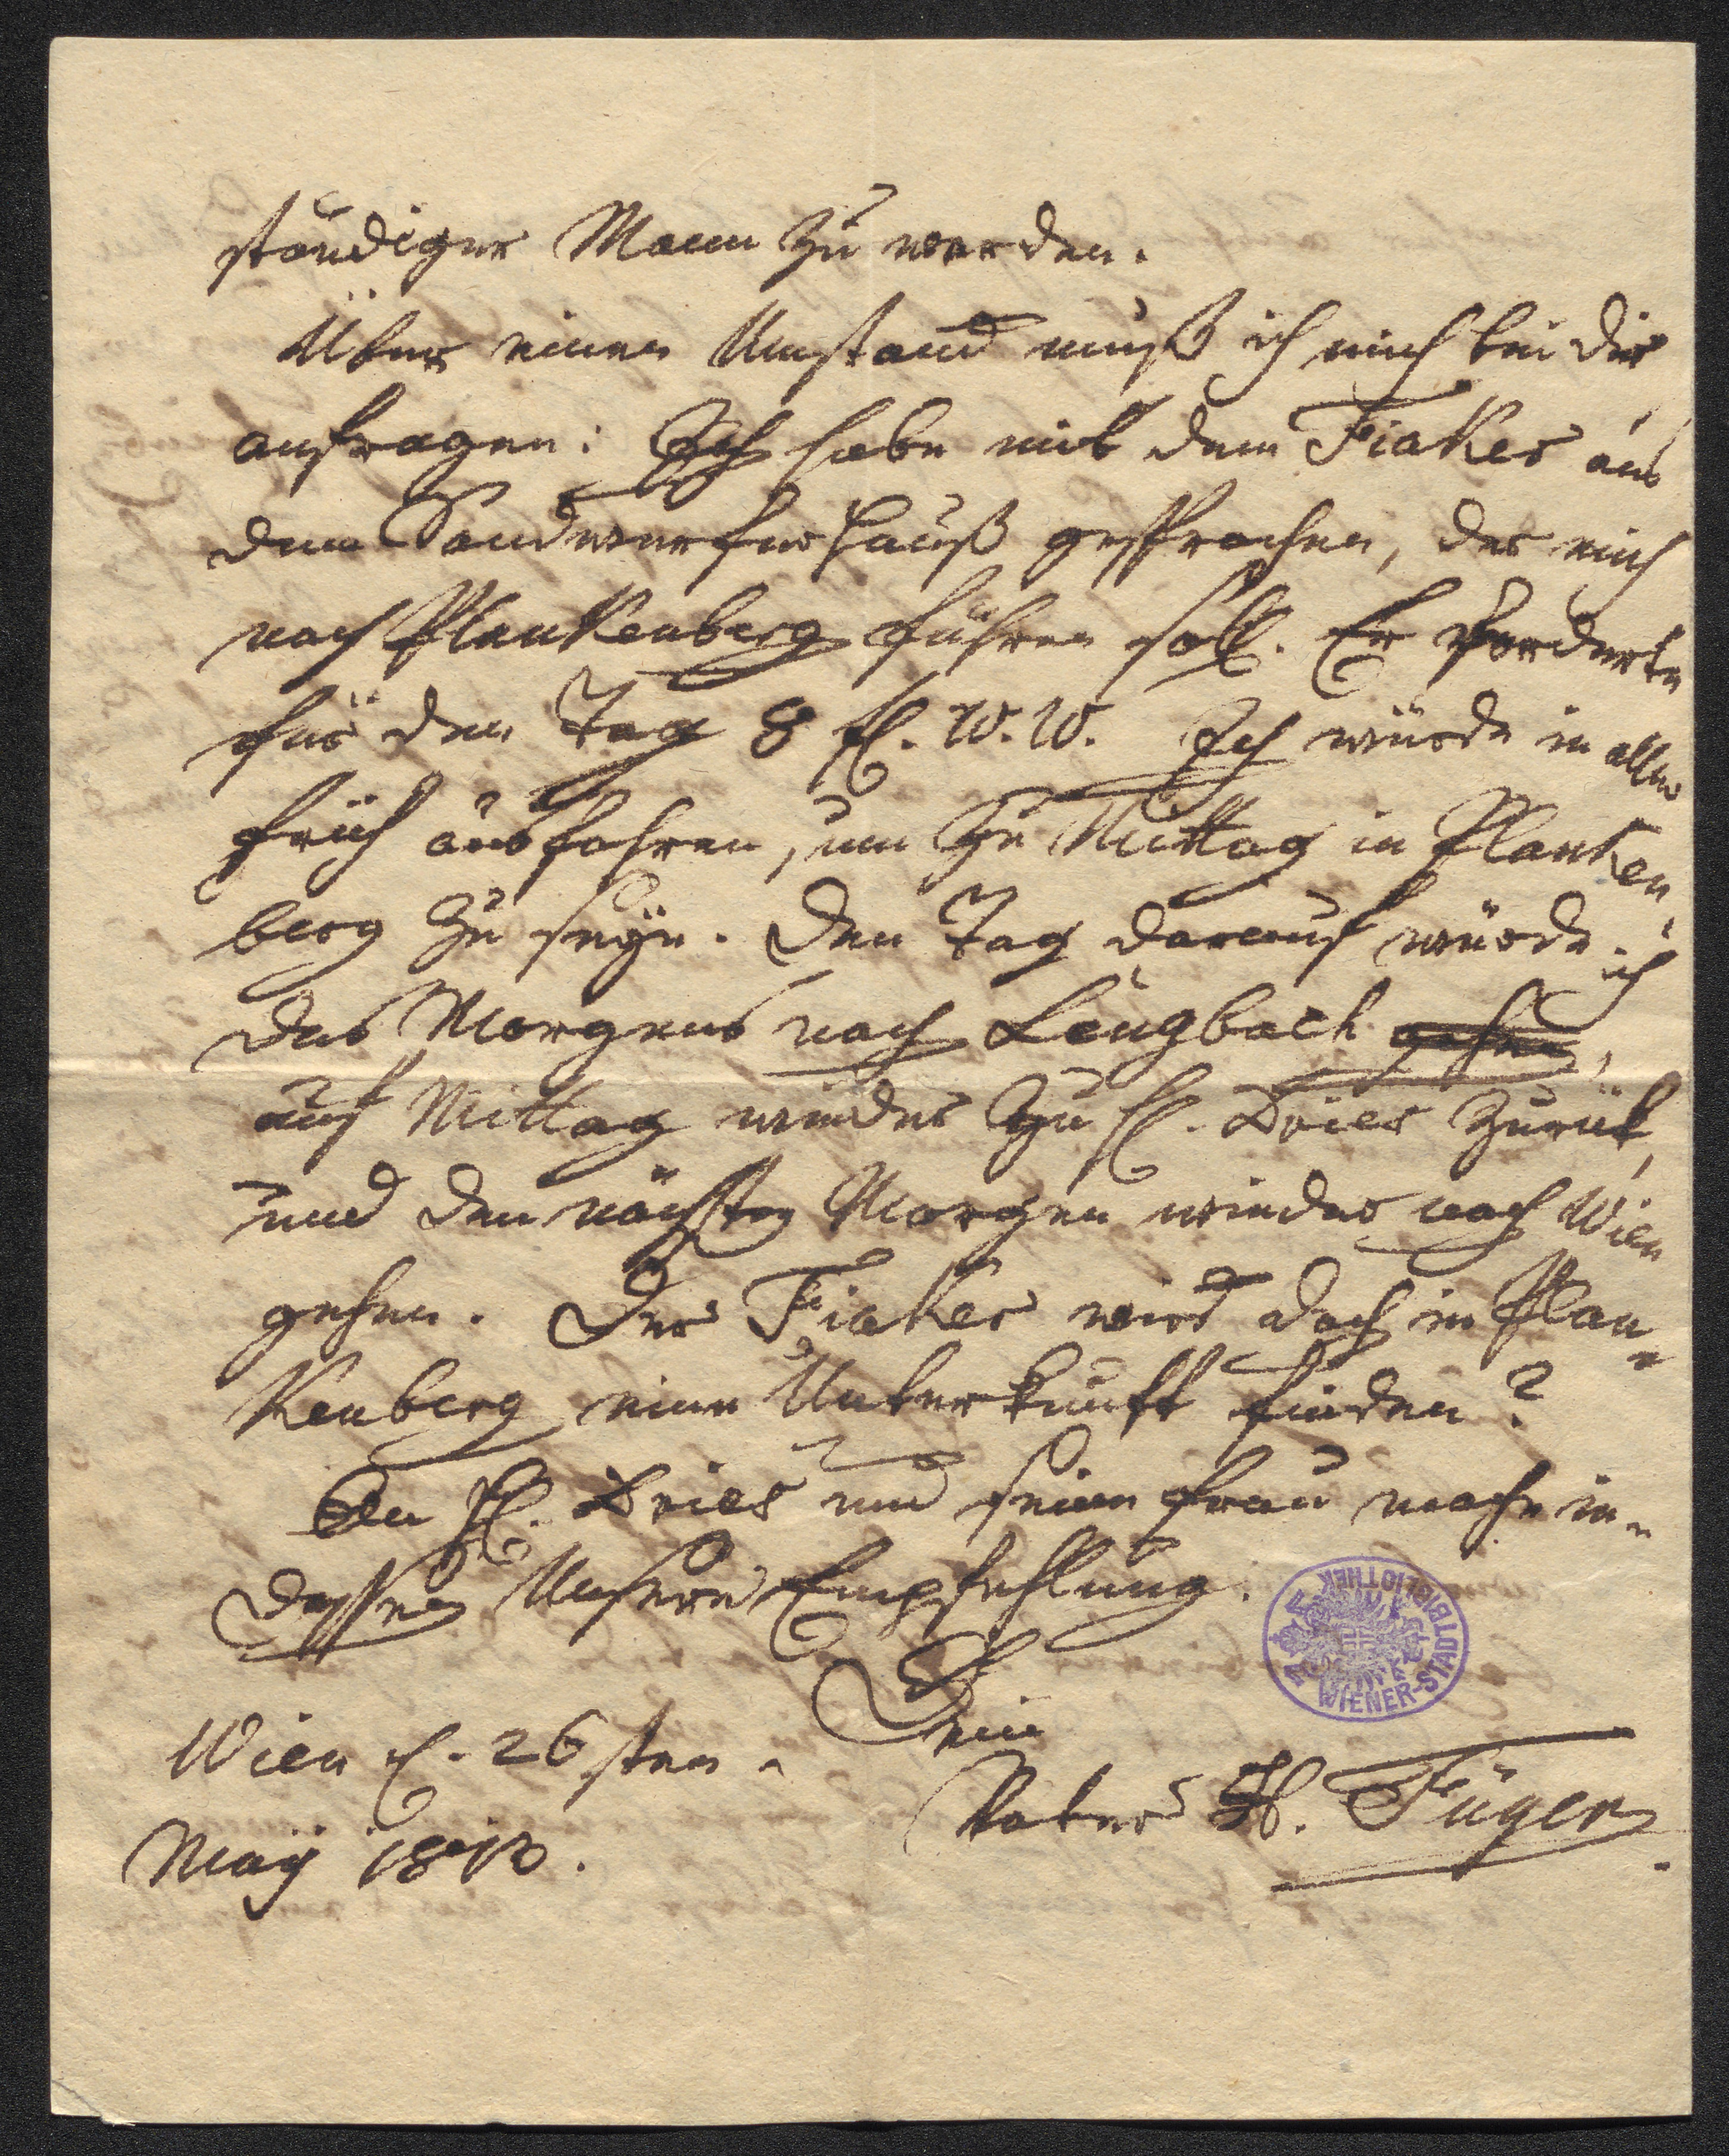 ständiger Mann zu werden.
Über einen Umstand muß ich mich bei dir
anfragen: Ich habe mit dem Fiaker aus
dem Sandwerferhauß gesprochen, der mich
nach Plankenberg führen soll. Er forderte
für den Tag 8 fl. W. W. Ich würde in aller
früh ausfahren, um zu Mittag in Planken¬
berg zu seyn. Den Tag darauf würde ich
des Morgens nach Lengbach gehen,
auf Mittag wieder zu H. Dries zurück,
und den nächsten Morgen wieder nach Wien
gehen. Der Fiaker wird doch in Plan¬
kenberg eine Unterkunft finden?
An H. Dries und seine Frau mache in¬
dessen Unsere Empfehlung.
Dein
Wien d. 26sten
Vater H. Füger
Maÿ 1813.
WIENER-STADTBIBLIOTHEK